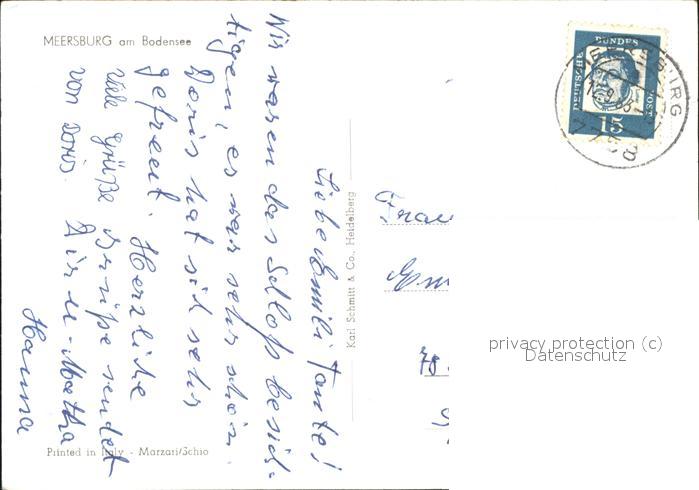 MEERSBURG am Bodensee
Liebe Emili Tante!
Wir waren das Schloß besich-
tigen, es war sehr schön.
Doris hat sich sehr
gefreut. Herzliche
Grüße sendet
viele Grüße
von Doris.
Hanna
Karl Schmitt & Co., Heidelberg
Printed in Italy - Marzari/Schio
DEUTSCHE BUNDESPOST
15
MEERSBURG
a
Frau
78
privacy protection (c)
Datenschutz